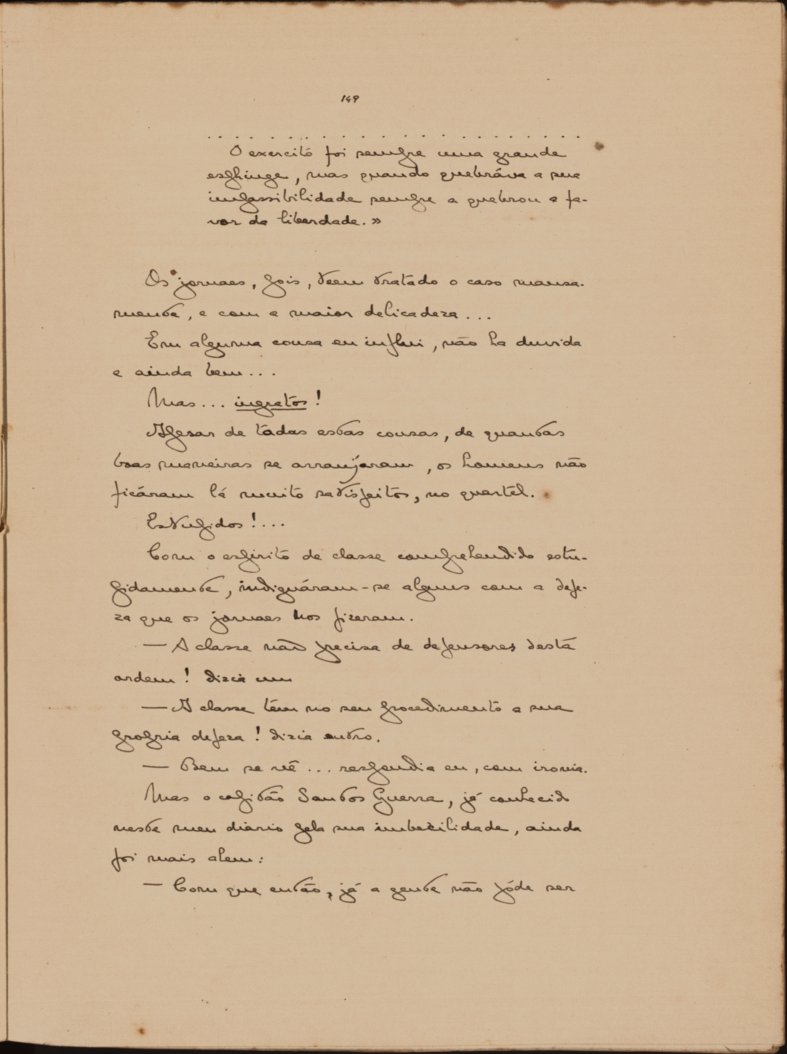 149
. . . . . . . . . . . . . . . . . . . . . .
O exercito foi sempre uma grande
esphinge, mas quando quebráva a sua
impassibilidade sempre a quebrou a fa-
vor da liberdade.»
Os jornaes, pois, teem tratado o caso mansa-
mente, e com a maior delicadeza...
Em alguma cousa eu influi, não ha duvida
e ainda bem...
Mas... ingratos!
Apesar de todas estas cousas, de quantas
boas maneiras se arranjaram, os homens não
ficáram lá muito satisfeitos, no quartel.
Estupidos!...
Com o espirito de classe comprehendido estu-
pidamente, indignáram-se alguns com a defe-
za que os jornaes nos fizeram.
— A classe não precisa de defensores desta
ordem! dizia um
— A classe têm no seu procedimento a sua
propria defeza! dizia outro.
— Bem se vê... respondia eu, com ironia.
Mas o capitão Santos Guerra, já conhecido
neste meu diario pela sua imbecilidade, ainda
foi mais alem:
— Com que então, já a gente não póde ser